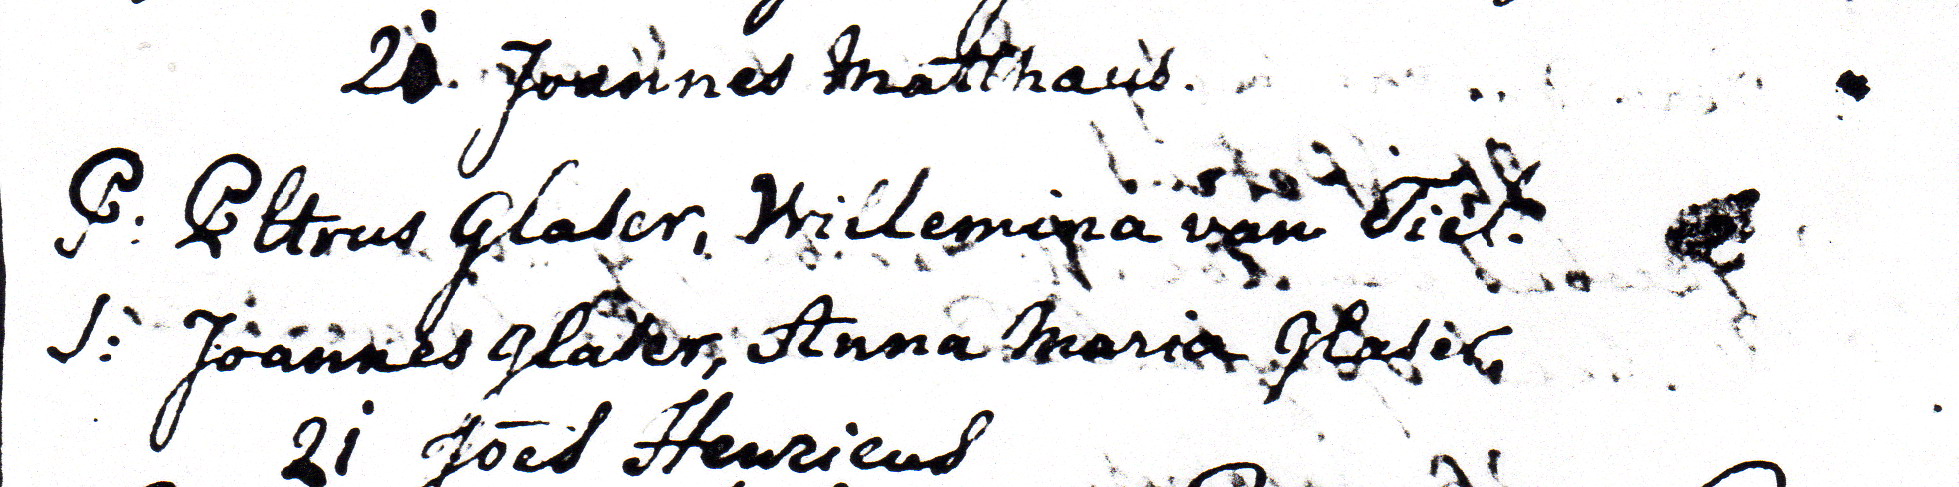 21. Joannes Matthaus.
P: Petrus Glaser, Willemina van Tiel.
S: Joannes Glaser, Anna Maria Glaser,
21 Joēs Henricus